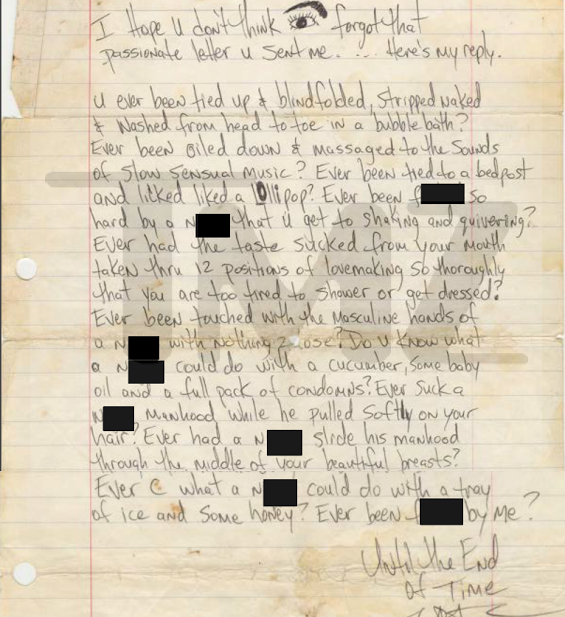 I Hope U don't Think forgot that
passionate letter u sent me.... Here's my reply.
U ever been tied up & blindfolded, stripped naked
& washed from head to toe in a bubble bath?
Ever been oiled down & massaged to the sounds
of slow sensual music? Ever been tied to a bedpost
and licked liked a lollipop? Ever been f so
hard by a N that u get to shaking and quivering?
Ever had the taste sucked from your mouth
taken thru 12 positions of lovemaking so thoroughly
that you are too tired to shower or get dressed?
Ever been touched with the masculine hands of
a N with nothing 2 lose? Do U know what
a N could do with a cucumber, some baby
oil and a full pack of condomns? Ever suck a
N manhood while he pulled softly on your
hair? Ever had a N slide his manhood
through the middle of your beautiful breasts?
Ever C what a N could do with a tray
of ice and some honey? Ever been f by me?
Until the End
of Time
TMZ